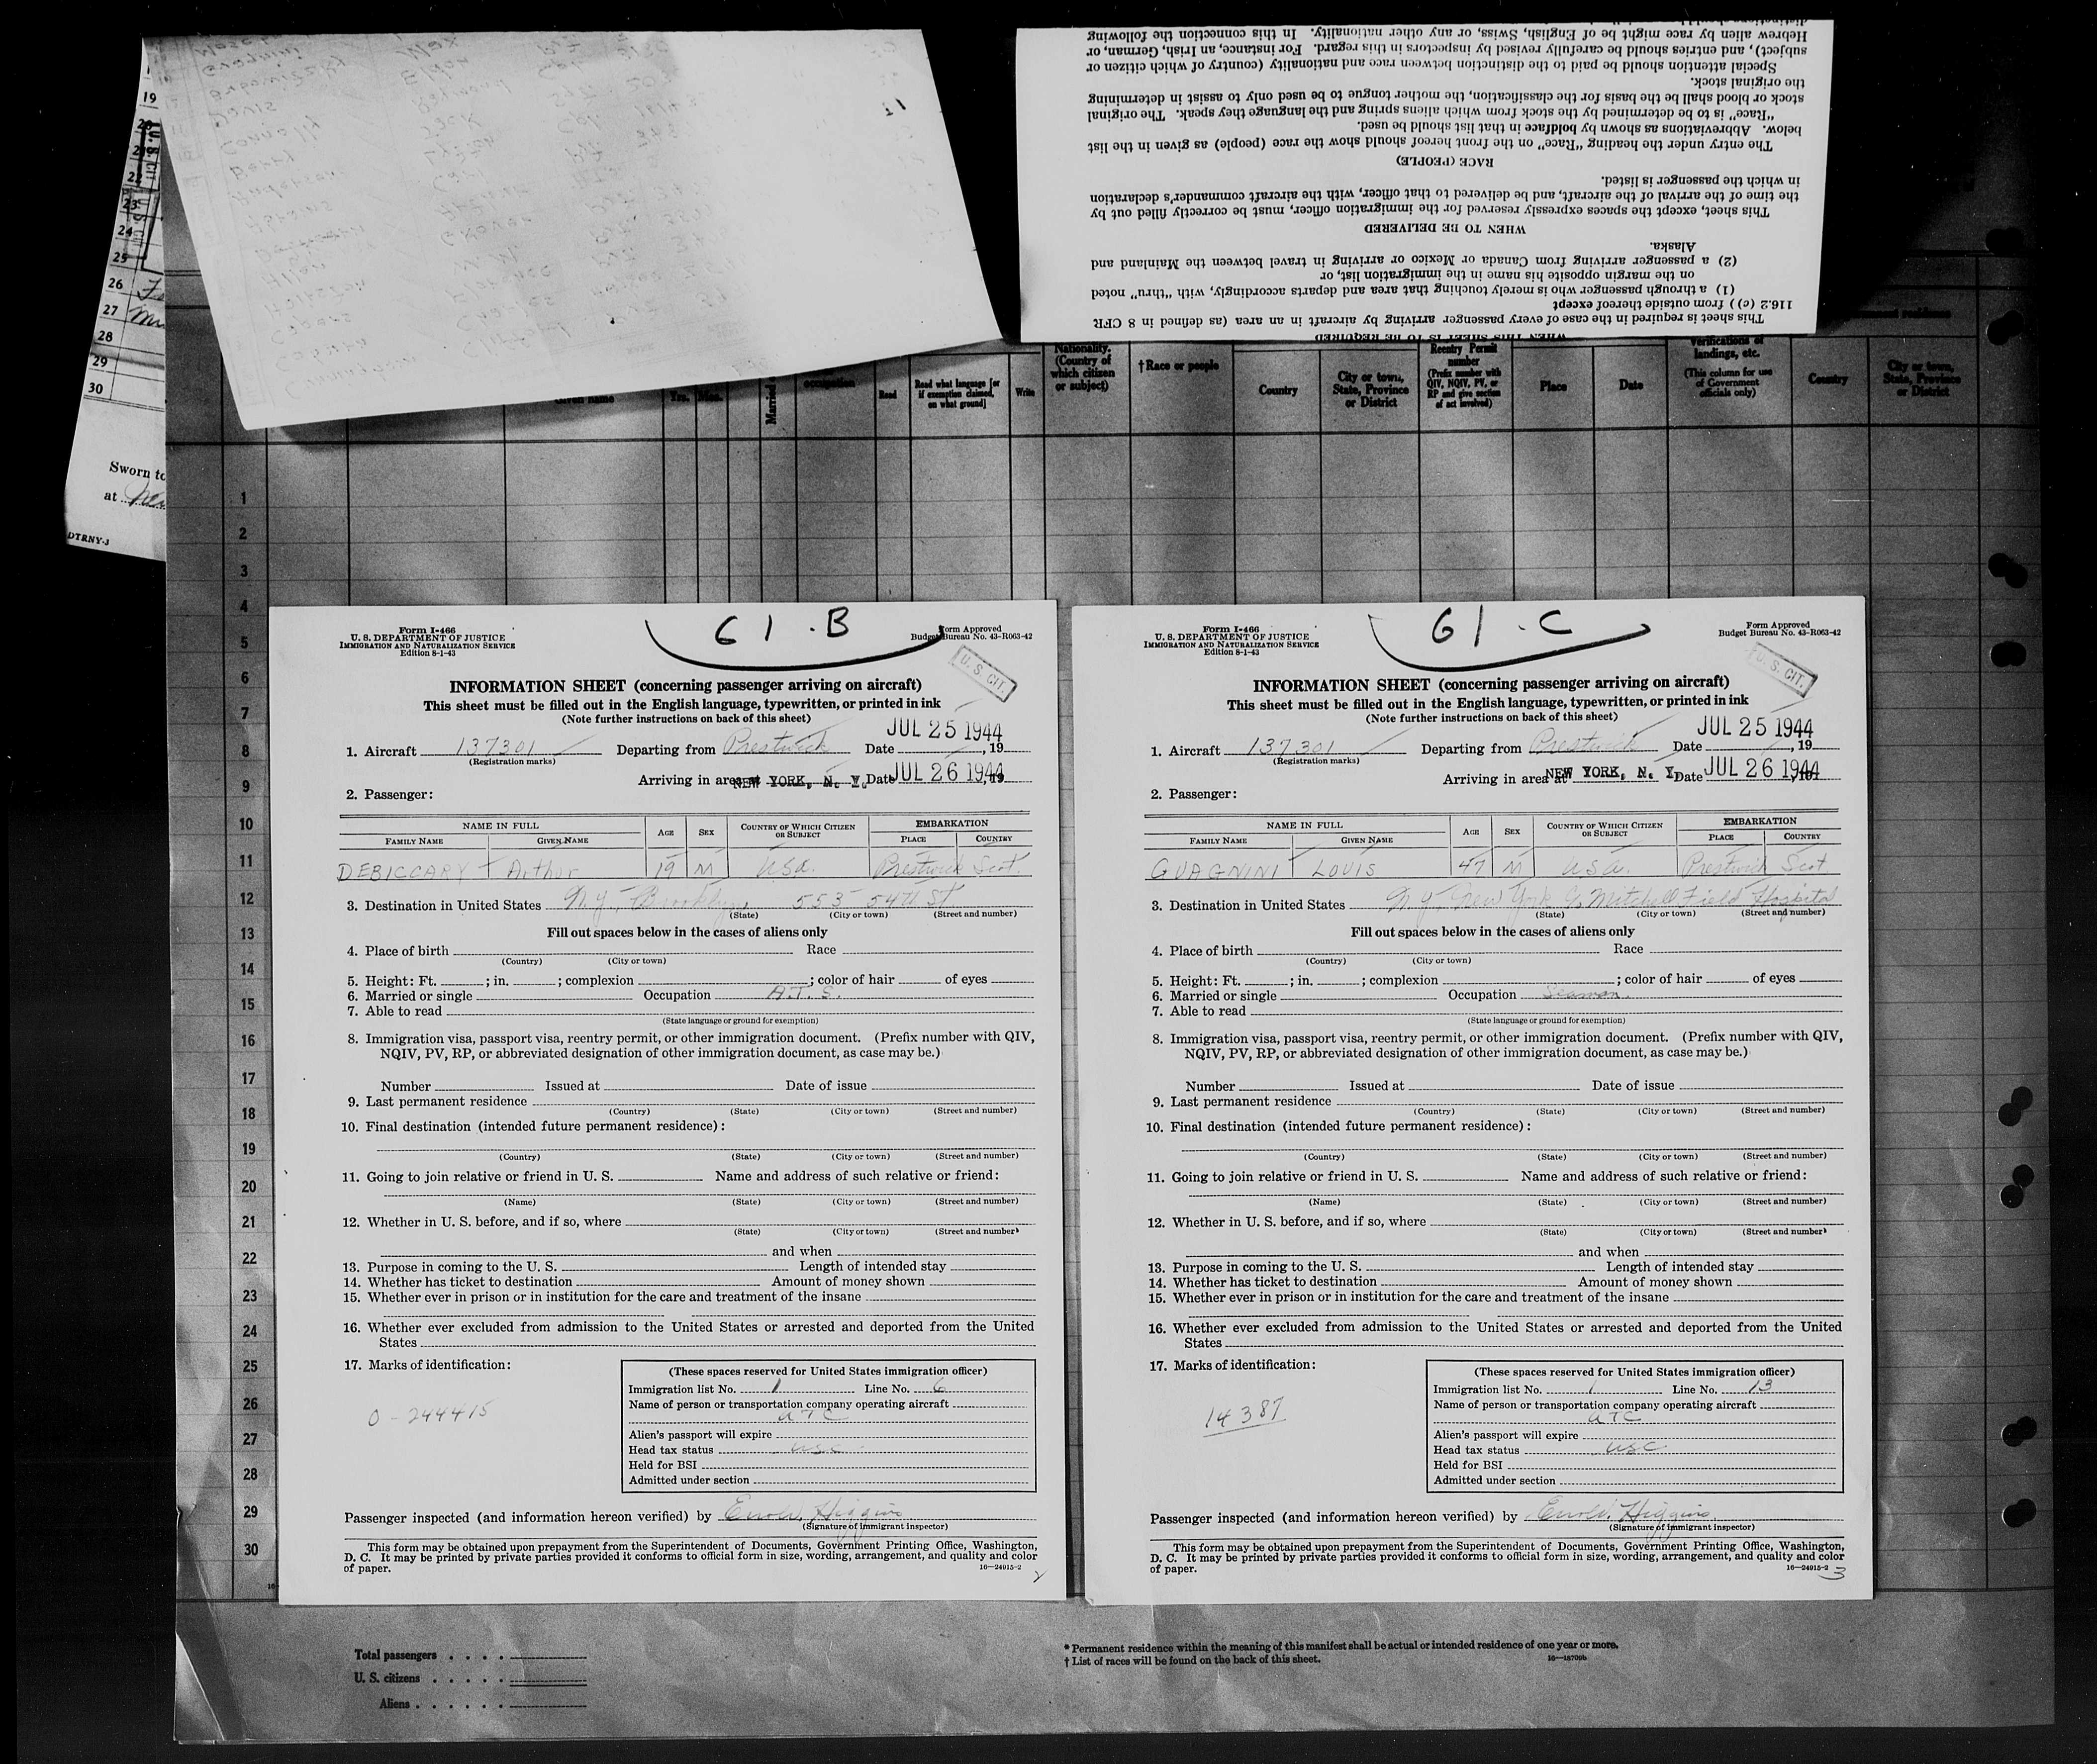 19
22
23
24
25
26
27
28
29
30
Sworn to
at
DTRNY-3
11
distinctions should
Hebrew alien by race might be of English, Swiss, or any other nationality. In this connection the following
subject), and entries should be carefully revised by inspectors in this regard. For instance, an Irish, German, or
Special attention should be paid to the distinction between race and nationality (country of which citizen or
the original stock.
stock or blood shall be the basis for the classification, the mother tongue to be used only to assist in determining
"Race" is to be determined by the stock from which aliens spring and the language they speak. The original
below. Abbreviations as shown by boldface in that list should be used.
The entry under the heading "Race" on the front hereof should show the race (people) as given in the list
RACE (PEOPLE)
in which the passenger is listed.
the time of the arrival of the aircraft, and be delivered to that officer, with the aircraft commander's declaration
This sheet, except the spaces expressly reserved for the immigration officer, must be correctly filled out by
WHEN TO BE DELIVERED
Alaska.
(2) a passenger arriving from Canada or Mexico or arriving in travel between the Mainland and
on the margin opposite his name in the immigration list, or
(1) a through passenger who is merely touching that area and departs accordingly, with "thru" noted
116.2 (c)) from outside thereof except
This sheet is required in the case of every passenger arriving by aircraft in an area (as defined in 8 CFR
WHEN THIS SHEET IS TO BE REQUIRED
Given name
Yrs. Mos.
Married
occupation
Read
Read what language [or if exemption claimed, on what ground]
Write
Nationality. (Country of which citizen or subject)
†Race or people
Country
City or town, State, Province or District
Reentry Permit number (Prefix number with QIV, NQIV, PV, or RP and give section of act involved)
Place
Date
verifications of landings, etc. (This column for use of Government officials only)
Country
City or town, State, Province or District
1
2
3
4
5
6
7
8
9
10
11
12
13
14
15
16
17
18
19
20
21
22
23
24
25
26
27
28
29
30
61.B
Form I-466
U. S. DEPARTMENT OF JUSTICE
IMMIGRATION AND NATURALIZATION SERVICE
Edition 8-1-43
Form Approved
Budget Bureau No. 43-R063-42
U. S. CIT.
INFORMATION SHEET (concerning passenger arriving on aircraft)
This sheet must be filled out in the English language, typewritten, or printed in ink
(Note further instructions on back of this sheet)
JUL 25 1944
1. Aircraft 137301 Departing from Prestwick Date , 19
(Registration marks)
Arriving in area at NEW YORK, N. Y. Date JUL 26 1944
2. Passenger:
NAME IN FULL AGE SEX COUNTRY OF WHICH CITIZEN OR SUBJECT EMBARKATION
FAMILY NAME GIVEN NAME PLACE COUNTRY
DEBICCARY Arthur 19 M USA. Prestwick Scot.
3. Destination in United States N.Y. Brooklyn 553 54th St
(State) (City or town) (Street and number)
Fill out spaces below in the cases of aliens only
4. Place of birth Race
(Country) (City or town)
5. Height: Ft. ; in. ; complexion ; color of hair of eyes
6. Married or single Occupation A.T.S.
7. Able to read
(State language or ground for exemption)
8. Immigration visa, passport visa, reentry permit, or other immigration document. (Prefix number with QIV,
NQIV, PV, RP, or abbreviated designation of other immigration document, as case may be.)
Number Issued at Date of issue
9. Last permanent residence
(Country) (State) (City or town) (Street and number)
10. Final destination (intended future permanent residence):
(Country) (State) (City or town) (Street and number)
11. Going to join relative or friend in U. S. Name and address of such relative or friend:
(Name) (State) (City or town) (Street and number)
12. Whether in U. S. before, and if so, where
(State) (City or town) (Street and number)
and when
13. Purpose in coming to the U. S. Length of intended stay
14. Whether has ticket to destination Amount of money shown
15. Whether ever in prison or in institution for the care and treatment of the insane
16. Whether ever excluded from admission to the United States or arrested and deported from the United
States
17. Marks of identification:
0-244415
(These spaces reserved for United States immigration officer)
Immigration list No. 1 Line No. 6
Name of person or transportation company operating aircraft
ATC
Alien's passport will expire
Head tax status USC
Held for BSI
Admitted under section
Passenger inspected (and information hereon verified) by Errol. Higgins
(Signature of immigrant inspector)
This form may be obtained upon prepayment from the Superintendent of Documents, Government Printing Office, Washington,
D. C. It may be printed by private parties provided it conforms to official form in size, wording, arrangement, and quality and color
of paper.
16—24915-2
61.C
Form I-466
U. S. DEPARTMENT OF JUSTICE
IMMIGRATION AND NATURALIZATION SERVICE
Edition 8-1-43
Form Approved
Budget Bureau No. 43-R063-42
U. S. CIT.
INFORMATION SHEET (concerning passenger arriving on aircraft)
This sheet must be filled out in the English language, typewritten, or printed in ink
(Note further instructions on back of this sheet)
JUL 25 1944
1. Aircraft 137301 Departing from Prestwick Date , 19
(Registration marks)
Arriving in area at NEW YORK, N. Y. Date JUL 26 1944
2. Passenger:
NAME IN FULL AGE SEX COUNTRY OF WHICH CITIZEN OR SUBJECT EMBARKATION
FAMILY NAME GIVEN NAME PLACE COUNTRY
GUAGNINI LOUIS 47 M USA. Prestwick Scot
3. Destination in United States N.Y. New York c/o Mitchell Field Hospital
(State) (City or town) (Street and number)
Fill out spaces below in the cases of aliens only
4. Place of birth Race
(Country) (City or town)
5. Height: Ft. ; in. ; complexion ; color of hair of eyes
6. Married or single Occupation Seaman.
7. Able to read
(State language or ground for exemption)
8. Immigration visa, passport visa, reentry permit, or other immigration document. (Prefix number with QIV,
NQIV, PV, RP, or abbreviated designation of other immigration document, as case may be.)
Number Issued at Date of issue
9. Last permanent residence
(Country) (State) (City or town) (Street and number)
10. Final destination (intended future permanent residence):
(Country) (State) (City or town) (Street and number)
11. Going to join relative or friend in U. S. Name and address of such relative or friend:
(Name) (State) (City or town) (Street and number)
12. Whether in U. S. before, and if so, where
(State) (City or town) (Street and number)
and when
13. Purpose in coming to the U. S. Length of intended stay
14. Whether has ticket to destination Amount of money shown
15. Whether ever in prison or in institution for the care and treatment of the insane
16. Whether ever excluded from admission to the United States or arrested and deported from the United
States
17. Marks of identification:
14387
(These spaces reserved for United States immigration officer)
Immigration list No. 1 Line No. 13
Name of person or transportation company operating aircraft
ATC
Alien's passport will expire
Head tax status USC
Held for BSI
Admitted under section
Passenger inspected (and information hereon verified) by Errol. Higgins.
(Signature of immigrant inspector)
This form may be obtained upon prepayment from the Superintendent of Documents, Government Printing Office, Washington,
D. C. It may be printed by private parties provided it conforms to official form in size, wording, arrangement, and quality and color
of paper.
16—24915-2 3
Total passengers . . . .
U. S. citizens . . . . .
Aliens . . . . . .
* Permanent residence within the meaning of this manifest shall be actual or intended residence of one year or more.
† List of races will be found on the back of this sheet.
16—18709b